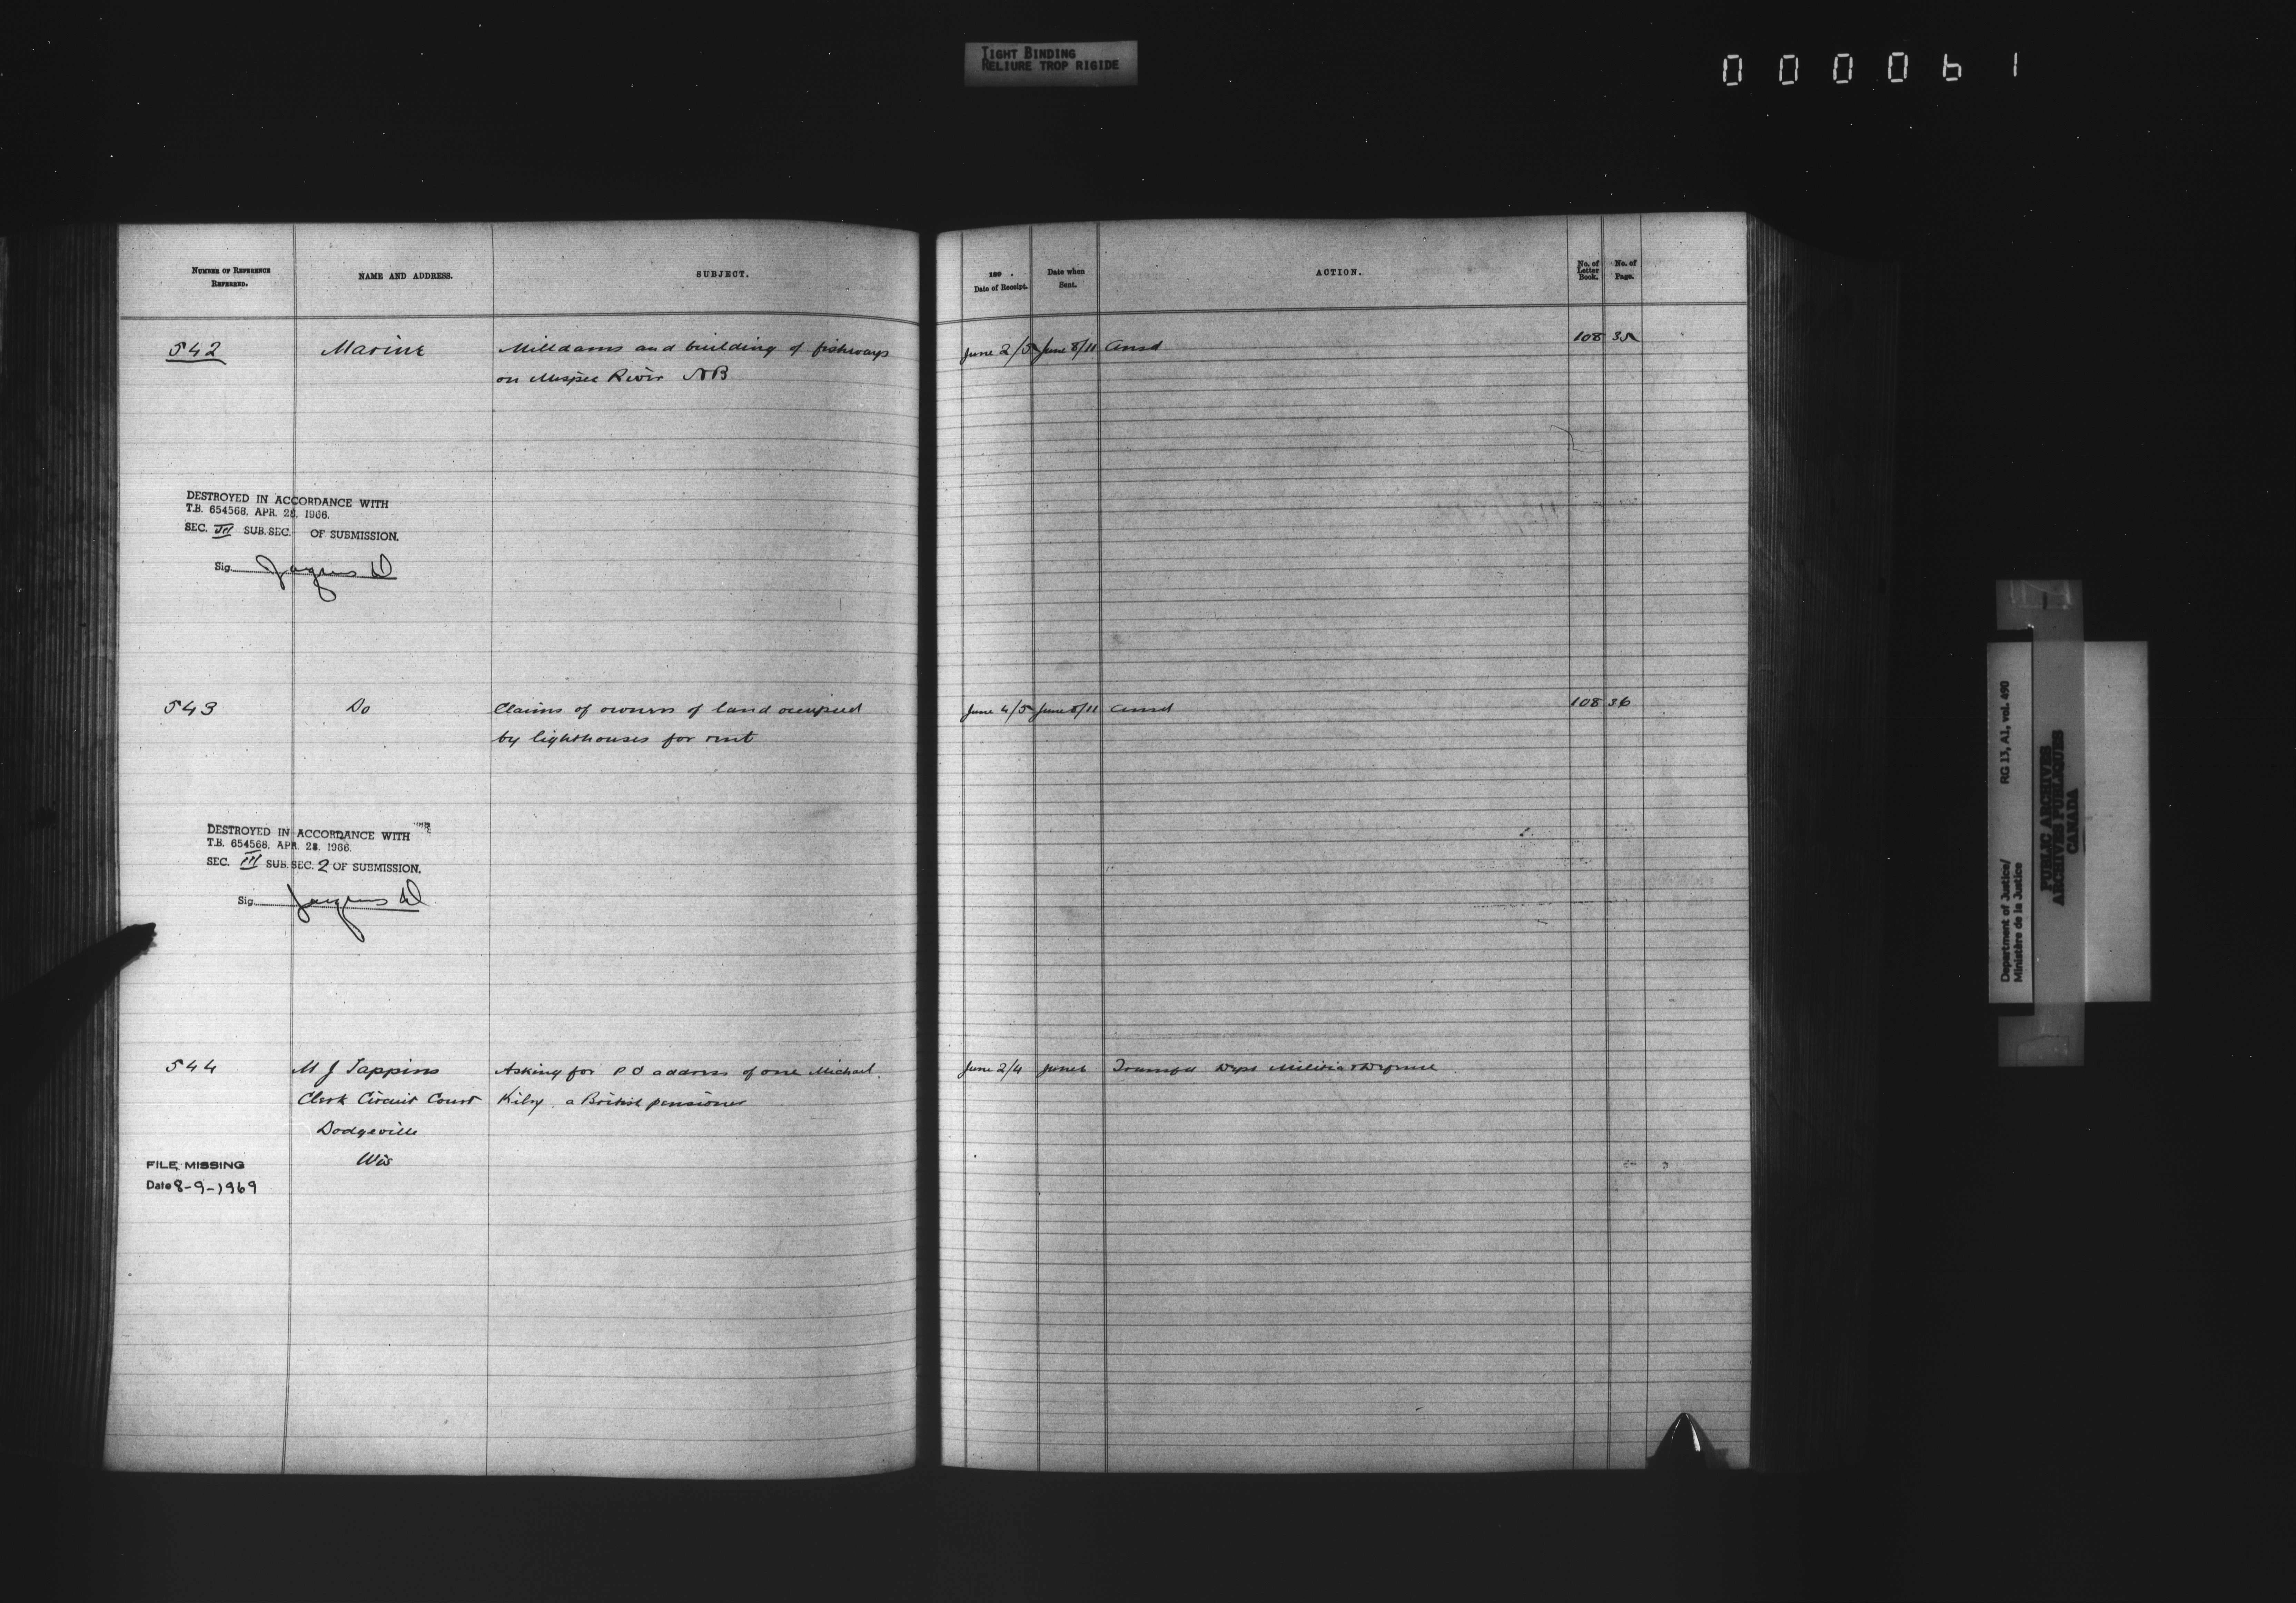 TIGHT BINDING
RELIURE TROP RIGIDE
000061
NUMBER OF REFERENCE REFERRED.
NAME AND ADDRESS.
SUBJECT.
189 . Date of Receipt.
Date when Sent.
ACTION.
No. of Letter Book.
No. of Page.
542 Marine Milldams and building of fishways June 2/5 June 8/11 Ansd 108 35
on Mispec River NB
DESTROYED IN ACCORDANCE WITH
T.B. 654568, APR. 28, 1966.
SEC. III SUB. SEC. OF SUBMISSION.
Sig.
543 Do Claims of owners of land occupied June 4/5 June 8/11 Ansd 108 36
by lighthouses for rent
DESTROYED IN ACCORDANCE WITH
T.B. 654568, APR. 28, 1966.
SEC. III SUB. SEC. 2 OF SUBMISSION.
Sig.
544 M J Tappins Asking for P O address of one Michael June 2/4 June 6 Dept Militia & Defence
Clerk Circuit Court Kilry a British pensioner
Dodgeville
Wis
FILE MISSING
Date 8-9-1969
Department of Justice/ RG 13, A1, vol. 490
Ministère de la Justice
PUBLIC ARCHIVES
ARCHIVES PUBLIQUES
CANADA